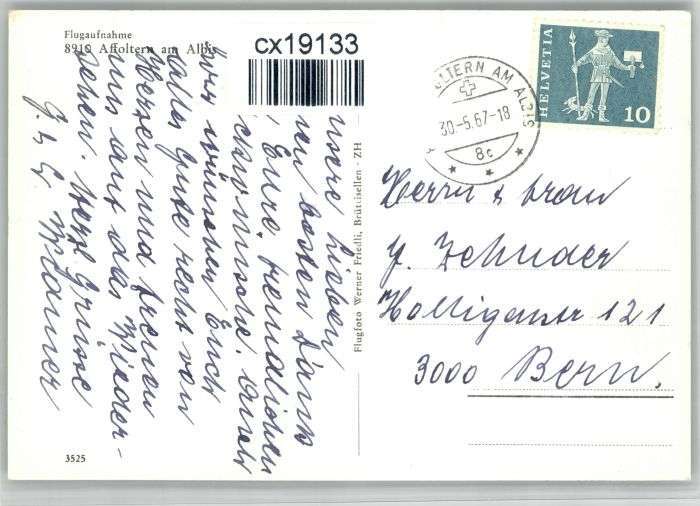 Flugaufnahme
8910 Affoltern am Albis
cx19133
HELVETIA
10
OLTERN AM ALBIS
30-5.67-18
8c
unsere Lieben
ten besten Dank
Eure, freundlichen
wünsche. Auch
wir wünschen Euch
alles Gute recht von
Herzen und freuen
uns auf das Wieder-
sehen. Herzl. Grüsse
Flugfoto Werner Friedli, Brüttisellen - ZH
Herrn & Frau
J. Zehnder
Holligenstr 121
3000 Bern.
3525